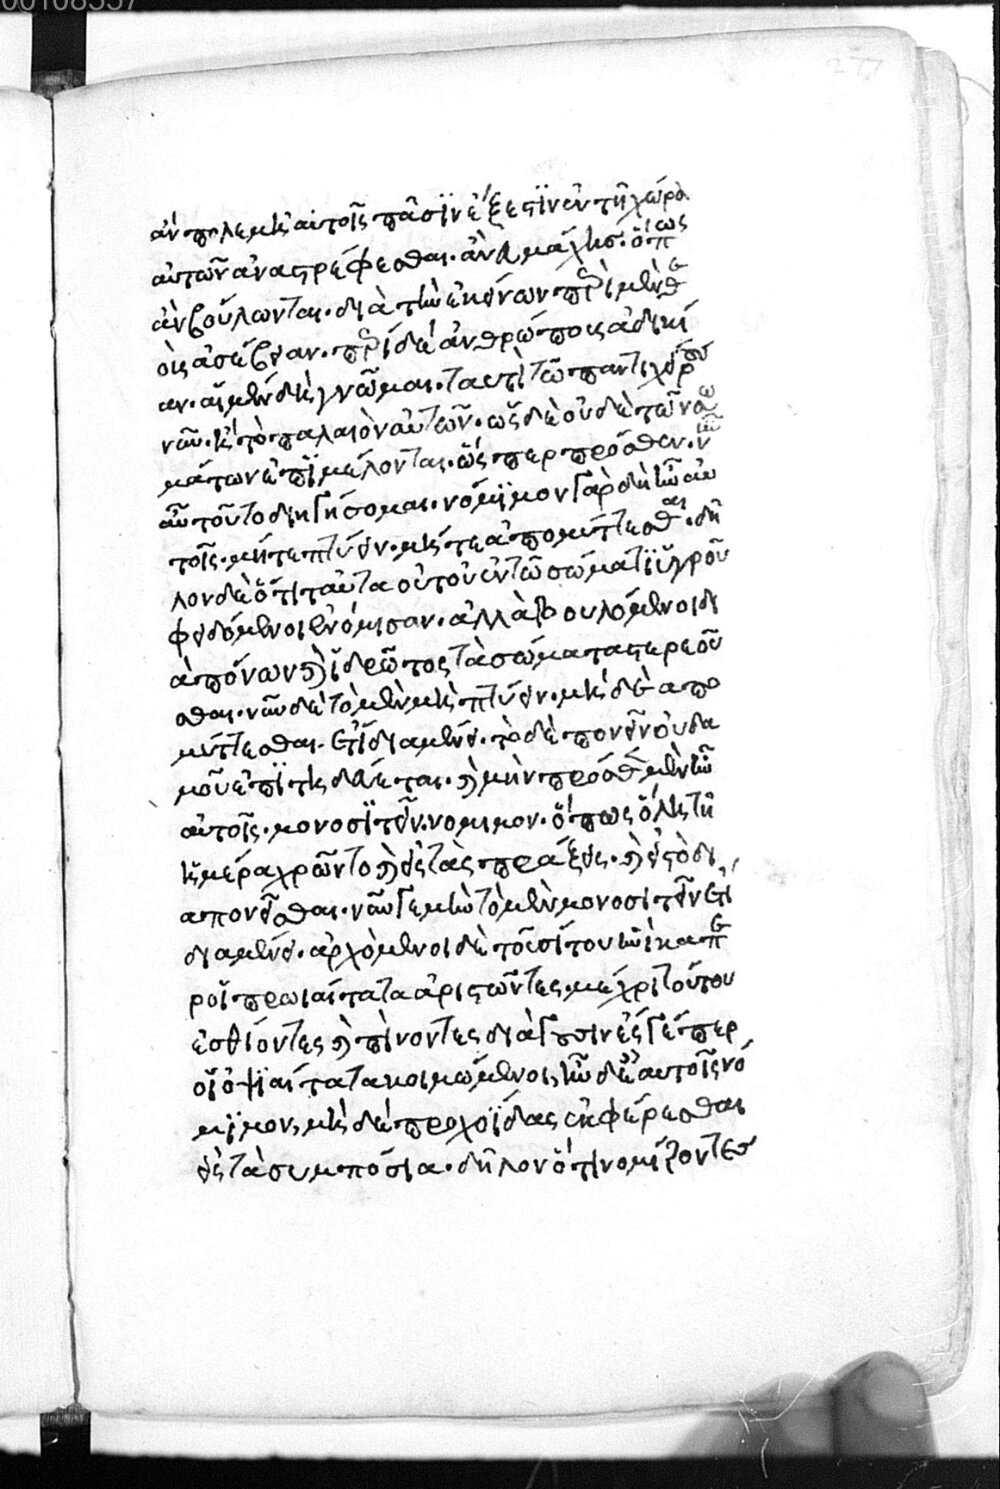 ἂν πολεμῇ αὐτοῖς πᾶσιν ἔξεστιν ἐν τῇ χώρᾳ
αὐτῶν ἀναστρέφεσθαι. ἄνευ μάχης. ὅπως
ἂν βούλωνται. διὰ τὴν ἐκείνων περὶ μὲν θε
οὺς ἀσέβειαν. περὶ δέ ἀνθρώποις ἀδικί
αν. αἱ μὲν δὴ γνῶμαι. τῷ παντὶ χείρους
νῦν. ἢ τὸ παλαιὸν αὐτῶν. ὡς δὲ οὐδὲ τῶν σω
μάτων ἐπιμέλονται. ὥσπερ πρόσθεν. νῦν
αὖ τοῦτο διηγήσομαι. νόμιμον γὰρ δὴ ἦν αὐ
τοῖς. μήτε πτύειν. μήτε ἀπομύττεσθαι. δῆ
λον δὲ ὅτι ταῦτα οὐ τοῦ ἐν τῷ σώματι ὑγροῦ
φειδόμενοι ἐνόμισαν. ἀλλὰ βουλόμενοι δι
ὰ πόνων καὶ ἱδρῶτος τὰ σώματα στερεοῦ
σθαι. νῦν δὲ τὸ μὲν μὴ πτύειν. μηδὲ ἀπο
μύττεσθαι. ἔτι διαμένει. τὸ δὲ πονεῖν οὐδα
μοῦ ἐπιτηδεύεται. καὶ μὴν πρόσθεν μὲν ἦν
αὐτοῖς. μονοσιτεῖν νομιμον. ὅπως ὅλῃ τῇ
ἡμέρα χρῶντο καὶ εἰς τὰς πράξεις. καὶ εἰς τὸ δι
απονεῖσθαι. νῦν γε μὴν τὸ μὲν μονοσιτεῖν ἔτι
διαμένει. ἀρχόμενοι δὲ τοῦ σίτου ἡνίκαπε
ρ οἱ πρωιαίτατα ἀριστῶντες. μέχρι τούτου
ἐσθίοντες καὶ πίνοντες διάγουσιν ἔς γέ περ
οἱ ὀψιαίτατα κοιμώμενοι, ἦν δὲ αὐτοῖς νό
μιμον, μηδὲ προχοΐδας εἰσφέρεσθαι
εἰς τὰ συμπόσια. δῆλον ὅτι νομίζοντες